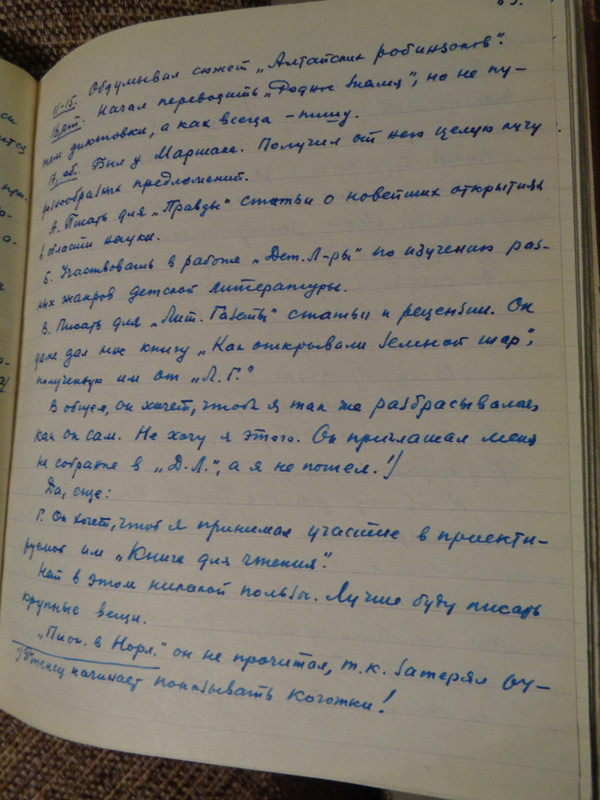 11-15. Обдумывал сюжет „Алтайских робинзонов".
16, пт. Начал переводить „Родное знамя", но не пу-
тем диктовки, а как всегда – пишу.
17, сб. Был у Маршака. Получил от него целую кучу
разнообразных предложений.
А. Писать для „Правды" статьи о новейших открытиях
в области науки.
Б. Участвовать в работе „Дет. Л-ры" по изучению раз-
ных жанров детской литературы.
В. Писать для „Лит. Газеты" статьи и рецензии. Он
даже дал мне книгу „Как открывали земной шар",
полученную им от „Л.Г."
В общем, он хочет, чтоб я так же разбрасывался,
как он сам. Не хочу я этого. Он приглашал меня
на собрание в „Д.Л.", а я не пошел.¹)
Да, еще:
Г. Он хочет, чтоб я принимал участие в проекти-
руемой им „Книге для чтения".
Нет в этом никакой пользы. Лучше буду писать
крупные вещи.
„Пион. в Норл." он не прочитал, т.к. затерял ру-
¹) Птенец начинает показывать коготки!